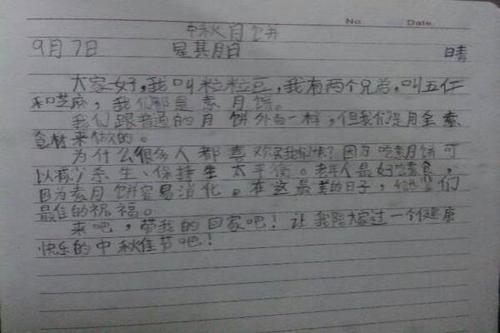 No. Date
中秋月饼
9月7日 星其月日 日青
大家好,我叫粒粒豆,我有两个兄弟,叫五仁
和芝麻,我们都是素月饼。
我们跟普通的月饼外台一样,但我们是月全素
食材来做的。
为什么很多人都喜欢买我们呢?因为吃素月饼可
以有少杀生、保持生太平衡。老年人最好吃素食,
因为素月饼容易消化。在这最美的日子,们
最佳的祝福。
来吧,带我的回家吧!让我陪大家过一个健康
快乐的中秋佳节吧!